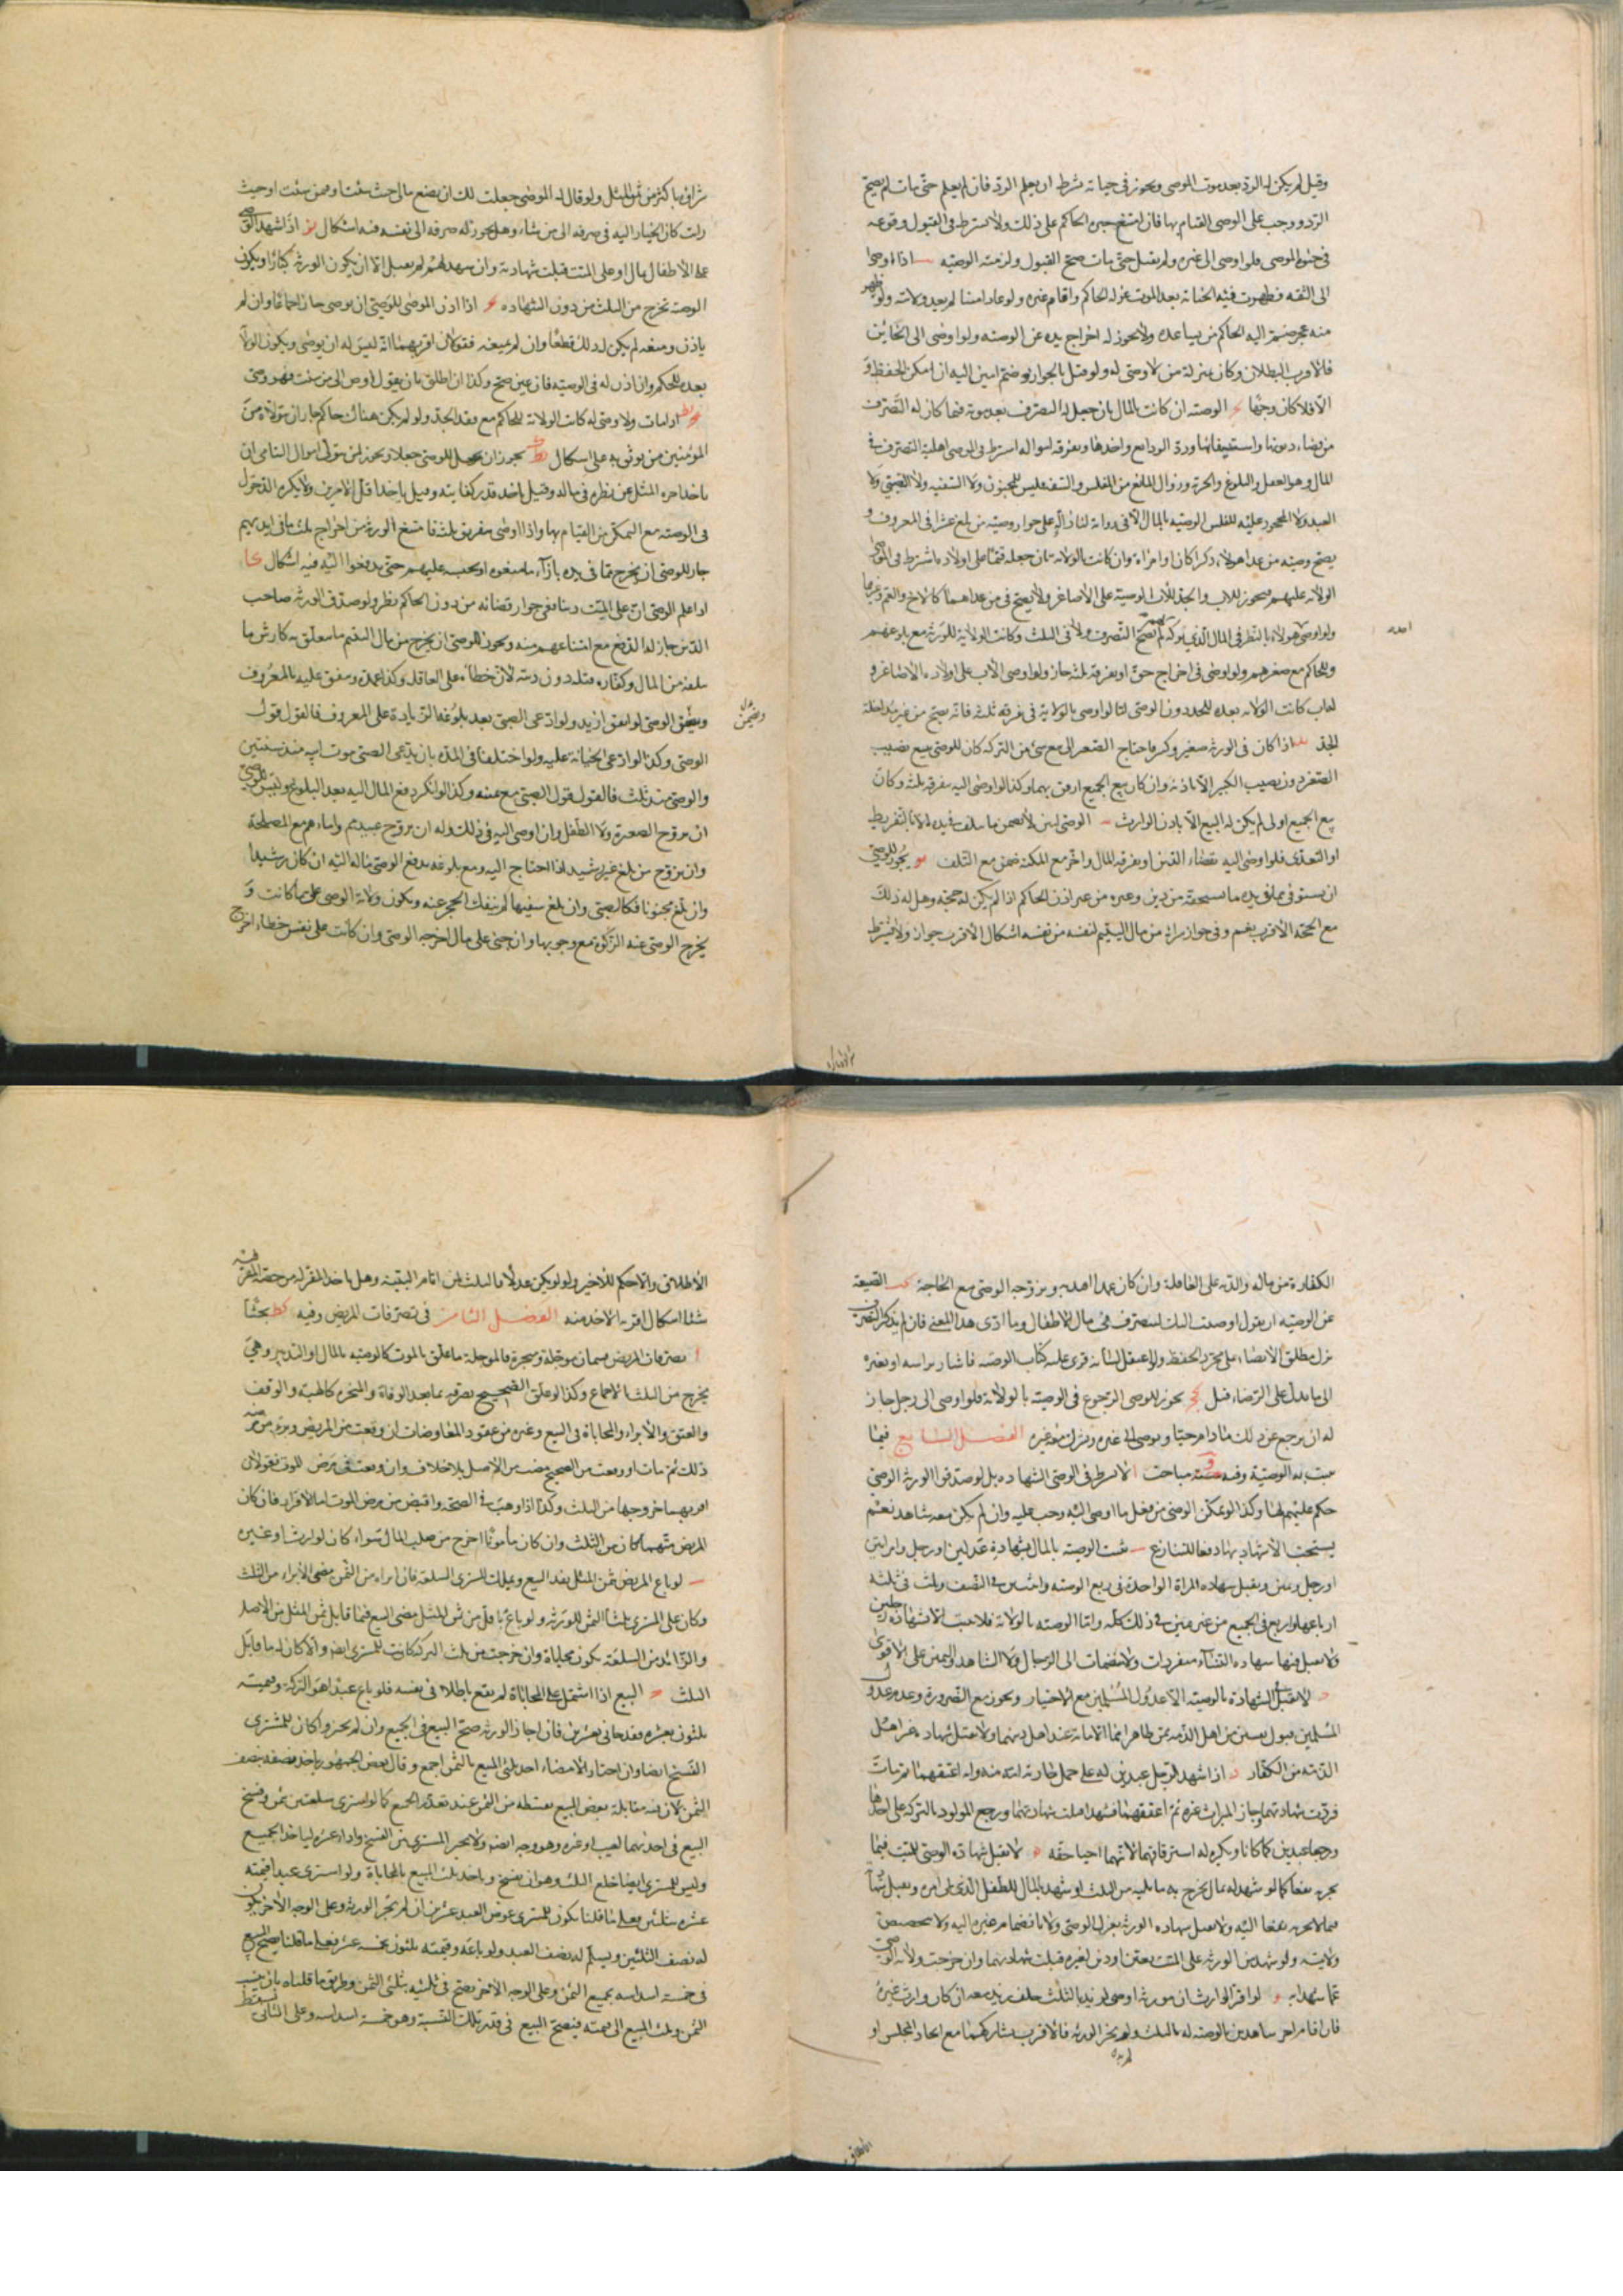 وقيل لم يكن له الرد بعد موت الموصى ويجوز فى حياته بشرط ان يعلم الرد فان لم يعلم حتى مات لم يصح
الرد ووجب على الوصى القيام بها فان امتنع جبره الحاكم على ذلك ولا يشترط فى القبول وقوعه
فى حيوة الموصى فلو اوصى الى غيره ولم يقبل حتى مات صح القبول ولزمته الوصية اذا اوصى
الى الثقه فظهرت فيه الخيانة بعد الموت عزله الحاكم واقام غيره ولو عاد امينا لم يعد ولايته ولو ظهر
منه عجز ضم اليه الحاكم من يساعده ولا يجوز له اخراج يده عن الوصيه ولو اوصى الى الخائن
فالاقرب البطلان وكان بمنزلة من لا وصى له ولو قيل بالجواز ويضم امين اليه ان امكن الحفظ و
الا فلا كان وجها الوصية ان كانت بالمال بان جعل له التصرف بعد موته فيما كان له التصرف
من قضاء ديونه واستيفائها ورد الودايع واخذها وتفرقه امواله اشترط فى الوصى اهلية التصرف فى
المال وهو العقل والبلوغ والحرية وزوال المانع من الفلس والسفه فليس للمجنون ولا السفيه ولا الصبى ولا
العبد ولا المحجور عليه للفلس الوصية بالمال الا فى رواية لنا دالة على جواز وصية من بلغ عشرا فى المعروف و
يصح وصية من عدا هولاء ذكرا كان او امراة وان كانت بالولاية بان جعله قيما على اولاده اشترط فى الموصى
الولاية عليهم فيجوز للاب والجد للاب الوصية على الاصاغر ولا يصح من عداهما كالاخ والعم وغيرهما
ولو اوصى هولاء بالنظر فى المال الذى يتركه لهم لم يصح التصرف ولا فى الثلث وكانت الولاية للورثة مع بلوغهم
وللحاكم مع صغرهم ولو اوصى فى اخراج حق او تفرقة ثلثه جاز ولو اوصى الاب على اولاده الاصاغر و
لهاب كانت الولاية بعده للجد دون الوصى اما لو اوصى بالولاية فى تفرقة ثلثه فانه يصح من غير مداخلة
للجد اذا كان فى الورثة صغير وكبير فاحتاج الصغير الى بيع شئ من التركة كان للوصى بيع نصيب
الصغير دون نصيب الكبير الا باذنه وان كان بيع الجميع ارفق بهما وكذا لو اوصى اليه بتفرقة ثلثه وكان
بيع الجميع اولى لم يكن له البيع الا باذن الوارث الوصى امين لا يضمن ما يتلف فى يده الا بالتفريط
او التعدى فلو اوصى اليه بقضاء الدين او بتفرقة المال واخر مع المكنة ضمن مع التلف يو يجوز للوصى
ان يستوفى مما فى يده ما يستحقه من دين وغيره من غير اذن الحاكم اذا لم يكن له حجة وهل له ذلك
مع الحجة الاقرب نعم وفى جواز شرائه من مال اليتيم لنفسه من نفسه اشكال الاقرب جوازه ولا يشترط
شرائه باكثر من ثمن المثل ولو قال له الموصى جعلت لك ان تضع مالى حيث شئت او فيمن شئت او حيث
رايت كان الخيار اليه فى صرفه الى من شاء وهل يجوز له صرفه الى نفسه فيه اشكال يز اذا شهد الوصى
على الاطفال بمال او على الميت قبلت شهادته وان شهد لهم لم يقبل الا ان يكون الورثة كبارا ويكون
الوصية تخرج من الثلث من دون الشهاده اذا اذن الموصى للوصى ان يوصى جاز اجماعا وان لم
ياذن ومنعه لم يكن له ذلك قطعا وان لم يمنعه فقولان اقربهما انه ليس له ان يوصى ويكون الولاية
بعده للحاكم وان اذن له فى الوصية فان عين صح وكذا ان اطلق بان يقول اوص الى من شئت فهو وصى
يط اذا مات ولا وصى له كانت الولاية للحاكم مع فقد الجد ولو لم يكن هناك حاكم جاز ان يتولاه من
المؤمنين من يوثق به على اشكال يجوز ان يجعل للوصى جعلا ويجوز لمن يتولى اموال اليتامى ان
ياخذ اجرة المثل عن نظره فى ماله وقيل ياخذ قدر كفايته وقيل ياخذ اقل الامرين ولا يكره الدخول
فى الوصية مع التمكن من القيام بها واذا اوصى بتفريق ثلثه فامتنع الورثة من اخراج ثلث ما فى ايديهم
جاز للوصى ان يخرج مما فى يده بازاء ما منعوه او يحبسه عليهم حتى يدفعوا اليه فيه اشكال كا
اذا علم الوصى ان على الميت دينا ففى جواز قضائه من دون الحاكم نظر ولو صدق الورثة صاحب
الدين جاز له الدفع مع امتناعهم منه ويجوز للوصى ان يخرج من مال اليتيم ما يتعلق به كارش ما
يتلفه من المال وكفارة قتله دون ديته لان خطأه على العاقلة وكذا عمده وينفق عليه بالمعروف
ويضمن الوصى لو انفق ازيد ولو ادعى الصبى بعد بلوغه الزيادة على المعروف فالقول قول
الوصى وكذا لو ادعى الخيانة عليه ولو اختلفا فى المدة بان يدعى الصبى موت ابيه منذ سنتين
والوصى منذ ثلث فالقول قول الصبى مع يمينه وكذا لو انكر دفع المال اليه بعد البلوغ وليس للوصى
ان يزوج الصغيرة ولا الطفل وان اوصى اليه فى ذلك وله ان يزوج عبيدهم واماءهم مع المصلحة
وان يزوج من بلغ غير رشيد اذا احتاج اليه ومع بلوغه يدفع الوصى ماله اليه ان كان رشيدا
وان بلغ مجنونا فكالصبى وان بلغ سفيها لم ينفك الحجر عنه ويكون ولاية الوصى على ما كانت و
يخرج الوصى عنه الزكوة مع وجوبها وان جنى على مال اخرجه الوصى وان كانت على نفس خطاء اخرج
الكفارة من ماله والدية على العاقلة وان كان عمدا ويزوجه الوصى مع الحاجة كب الصيغة
عن الوصية ان يقول اوصيت اليك لتتصرف فى مال الاطفال وما ادى هذا المعنى فان لم يذكر التصرف
نزل مطلق الايصاء على مجرد الحفظ ولو اعتقل لسانه فقرى عليه كتاب الوصية فاشار براسه او بغيره
الى ما يدل على الرضاء قبل كج يجوز للموصى الرجوع فى الوصية بالولاية فلو اوصى الى رجل جاز
له ان يرجع عن ذلك ما دام حيا ويوصى الى غيره ويشرك معه غيره الفصل السابع فيما
يثبت به الوصية وفيه مباحث ا لا يشترط فى الوصى الشهاده بل لو صدقوا الورثة الوصى
حكم عليهم بها وكذا لو تمكن الوصى من فعل ما اوصى اليه وجب عليه وان لم يكن معه شاهد نعم
يستحب الاشهاد بها دفعا للتنازع ب تثبت الوصية بالمال بشهادة عدلين او رجل وامراتين
او رجل ويمين ويقبل شهاده المراة الواحدة فى ربع الوصية واثنتين فى النصف وثلث فى ثلثة
ارباعها واربع فى الجميع من غير يمين فى ذلك كله واما الوصية بالولاية فلا تثبت الا بشهادة رجلين
ولا تقبل فيها شهادة النساء منفردات ولا منضمات الى الرجال ولا الشاهد واليمين على الاقوى
لا تقبل الشهادة بالوصية الا عدول المسلمين مع الاختيار ويجوز مع الضرورة وعدم عدول
المسلمين قبول نفسين من اهل الذمة ممن ظاهرهما الامانة عند اهل دينهما ولا تقبل شهادة غير اهل
الذمة من الكفار د اذا شهد لرجل عبدين له على حمل جاريته انه منه وانه اعتقهما ثم مات
فردت شهادتهما وحاز الميراث غيره ثم اعتقهما فشهدا قبلت شهادتهما ورجع المولود بالتركة على اخذها
ورجعا عبدين كما كانا ويكره له استرقاقهما لانهما احيا حقه ه لا تقبل شهادة الوصى للميت فيما
يجر به نفعا كما لو شهد له بمال يخرج به ما يليه من الثلث او شهد بالمال للطفل الذى يلى امره وتقبل شهادته
فيما لا يجر به نفعا اليه ولا تقبل شهاده الورثة بعزل الوصى ولا بانضمام غيره اليه ولا بتخصيص
ولايته ولو شهد من الورثة على الميت بعتق او دين لغيره قبلت شهادتهما وان خرجت ولاية الوصى
عما شهدا به و لو اقر الوارث ان مورثه اوصى لزيد بالثلث حلف زيد معه ان كان وارث غيره
فان اقام اخر شاهدين بالوصية له بالثلث ولم يجز الورثة فالاقرب يشاركهما مع اتحاد المجلس او
الاطلاق والا حكم للاخير ولو لم يكن عدلا فالثلث لمن اقام البينة وهل ياخذ المقر له من حصة المقر
شيئا اشكال اقربه الاخذ منه الفصل الثامن فى تصرفات المريض وفيه كط بحثا
ا تصرفات المريض قسمان موجلة ومنجزة فالموجلة ما علق بالموت كالوصية بالمال او التدبير وهى
يخرج من الثلث بالاجماع وكذا لو علق الصحيح تصرفه بما بعد الوفاة والمنجزه كالهبة والوقف
والعتق والابراء والمحاباة فى البيع وغيره من عقود المعاوضات ان وقعت من المريض وبرء من مرضه
ذلك ثم مات او وقعت من الصحيح مضت من الاصل بلا خلاف وان وقعت فى مرض الموت فقولان
اقربهما خروجها من الثلث وكذا اذا وهب فى الصحة واقبض من مرض الموت اما الاقرار فان كان
المريض متهما كان من الثلث وان كان مأمونا اخرج من صلب المال سواء كان لوارث او غيره
ب لو باع المريض بثمن المثل نفذ البيع وملك المشترى السلعة فان ابراه من الثمن مضى الابراء من الثلث
وكان على المشترى ثلثا الثمن للورثة ولو باع باقل من ثمن المثل مضى البيع فيما قابل ثمن المثل من الاصل
والزائد من السلعة يكون محاباة وان خرجت من ثلث التركة كانت للمشترى ايضا والا كان له ما قابل
الثلث ج البيع اذا اشتمل على المحاباة لم يقع باطلا فى نفسه فلو باع عبدا هو التركة وقيمته
ثلثون بعشرة فقد حابى بعشرين فان اجاز الورثة صح البيع فى الجميع وان لم يجيزوا كان للمشترى
الفسخ ايضا وان اختار الامضاء اخذ ثلثى المبيع بالثمن اجمع وقال بعض الجمهور ياخذ نصفه بنصف
الثمن لان فيه مقابلة بعض المبيع بقسطه من الثمن عند تعذر الجميع كما لو اشترى سلعتين بثمن وفسخ
البيع فى احديهما لعيب او غيره وهو وجه ايضا ولا يجبر المشترى بين الفسخ واداء عشرة لياخذ الجميع
وليس للمشترى ايضا خلع الثلث وهو ان يفسخ وياخذ ثلث المبيع بالمحاباة ولو اشترى عبدا قيمته
عشرة بثلثين فعلى ما قلناه يكون للمشترى عوض العبد عشرين ان لم يجز الورثة وعلى الوجه الاخر يكون
له نصف الثلثين ويسلم له نصف العبد ولو باعه وقيمته ثلثون بخمسة عشر فعلى ما قلناه يصح البيع
فى خمسة اسداسه بجميع الثمن وعلى الوجه الاخر يصح فى ثلثيه بثلثى الثمن وطريق ما قلناه بان ينسب
الثمن وثلث المبيع الى قيمته فيصح البيع فى قدر تلك النسبة وهو خمسة اسداسه وعلى الثانى يسقط